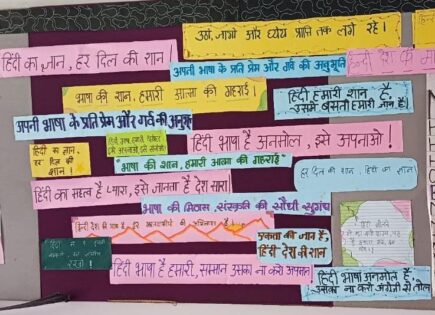 उठो, जागो और ध्येय प्राप्ति तक लगे रहो।
हिंदी का ज्ञान, हर दिल की शान!
अपनी भाषा के प्रति प्रेम और गर्व की अनुभूति
हिन्दी देश की
भाषा की शान, हमारी आत्मा की गहराई।
हिंदी हमारी शान है,
उसमें बसती हमारी जान है।
अपनी भाषा के प्रति प्रेम और गर्व की
हिंदी भाषा है अनमोल, इसे अपनाओ!
हिंदी का ज्ञान,
हर दिल की
शान।
"भाषा की शान, हमारी आत्मा की गहराई"
हर दिल की शान, हिंदी का ज्ञान
हिंदी का महत्व है प्यारा, इसे जानता है देश सारा
भाषा की मिठास, संस्कृति की सौंधी सुगंध
एकता की जान है,
हिंदी देश की शान
हिंदी भाषा है हमारी, सम्मान उसका ना करो अपमान
हिंदी भाषा अनमोल है,
उसका ना करो अंग्रेजी से तोल